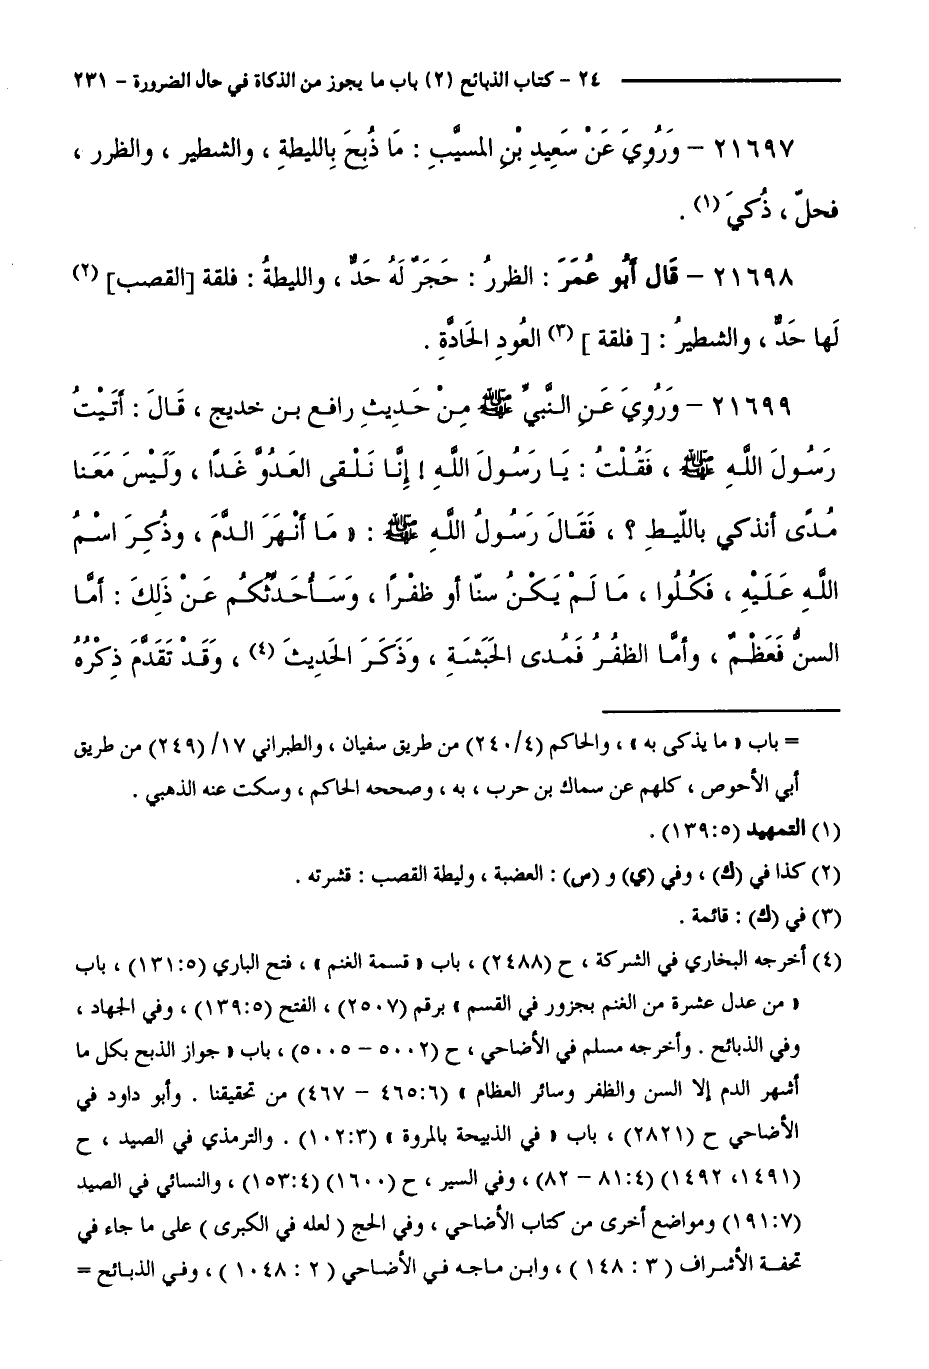 ٢٤ – كتاب الذبائح (٢) باب ما يجوز من الذكاة في حال الضرورة – ٢٣١
٢١٦٩٧ – وَرُوِيَ عَنْ سَعِيدِ بْنِ المسيَّبِ : مَا ذُبِحَ بِالليطةِ ، والشطير ، والظرر ،
فحلّ ، ذُكيَ (١) .
٢١٦٩٨ – قَال أَبُو عُمَرَ : الظررُ : حَجَرٌ لَهُ حَدٌّ ، والليطةُ : فلقة [القصب] (٢)
لَها حَدٌّ ، والشطيرُ : [ فلقة ] (٣) العُودِ الحَادَّةِ .
٢١٦٩٩ – وَرُوِيَ عَنِ النَّبِيِّ ﷺ مِنْ حَدِيثِ رافع بن خديج ، قَالَ : أَتَيْتُ
رَسُولَ اللَّهِ ﷺ ، فَقُلْتُ : يَا رَسُولَ اللَّهِ ! إِنَّا نَلْقى العَدُوَّ غَدًا ، وَلَيْسَ مَعَنا
مُدًى أنذكي باللّيطِ ؟ ، فَقَالَ رَسُولُ اللَّهِ ﷺ : « مَا أَنْهَرَ الدَّمَ ، وذُكِرَ اسْمُ
اللَّهِ عَلَيْهِ ، فَكُلُوا ، مَا لَمْ يَكُنْ سنّا أو ظفْرًا ، وَسَأُحَدِّثُكُم عَنْ ذَلِكَ : أمَّا
السنُّ فَعَظْمٌ ، وأمَّا الظفُرُ فَمُدى الحَبَشَةِ ، وَذَكَرَ الحَدِيثَ (٤) ، وَقَدْ تَقَدَّمَ ذِكْرُهُ
= باب « ما يذكى به » ، والحاكم (٢٤٠/٤) من طريق سفيان ، والطبراني ١٧/ (٢٤٩) من طريق
أبي الأحوص ، كلهم عن سماك بن حرب ، به ، وصححه الحاكم ، وسكت عنه الذهبي .
(١) التمهيد (١٣٩:٥) .
(٢) كذا في (ك) ، وفي (ي) و (س) : العضبة ، وليطة القصب : قشرته .
(٣) في (ك) : قائمة .
(٤) أخرجه البخاري في الشركة ، ح (٢٤٨٨) ، باب « قسمة الغنم » ، فتح الباري (١٣١:٥) ، باب
« من عدل عشرة من الغنم بجزور في القسم » برقم (٢٥٠٧) ، الفتح (١٣٩:٥) ، وفي الجهاد ،
وفي الذبائح . وأخرجه مسلم في الأضاحي ، ح (٥٠٠٢ – ٥٠٠٥) ، باب « جواز الذبح بكل ما
أشهر الدم إلا السن والظفر وسائر العظام » (٤٦٥:٦ – ٤٦٧) من تحقيقنا . وأبو داود في
الأضاحي ح (٢٨٢١) ، باب « في الذبيحة بالمروة » (١٠٢:٣) . والترمذي في الصيد ، ح
(١٤٩١، ١٤٩٢) (٨١:٤ – ٨٢) ، وفي السير ، ح (١٦٠٠) (١٥٣:٤) ، والنسائي في الصيد
(١٩١:٧) ومواضع أخرى من كتاب الأضاحي ، وفي الحج ( لعله في الكبرى ) على ما جاء في
تحفة الأشراف ( ٣ : ١٤٨ ) ، وابن ماجه في الأضاحي ( ٢ : ١٠٤٨ ) ، وفي الذبائح =